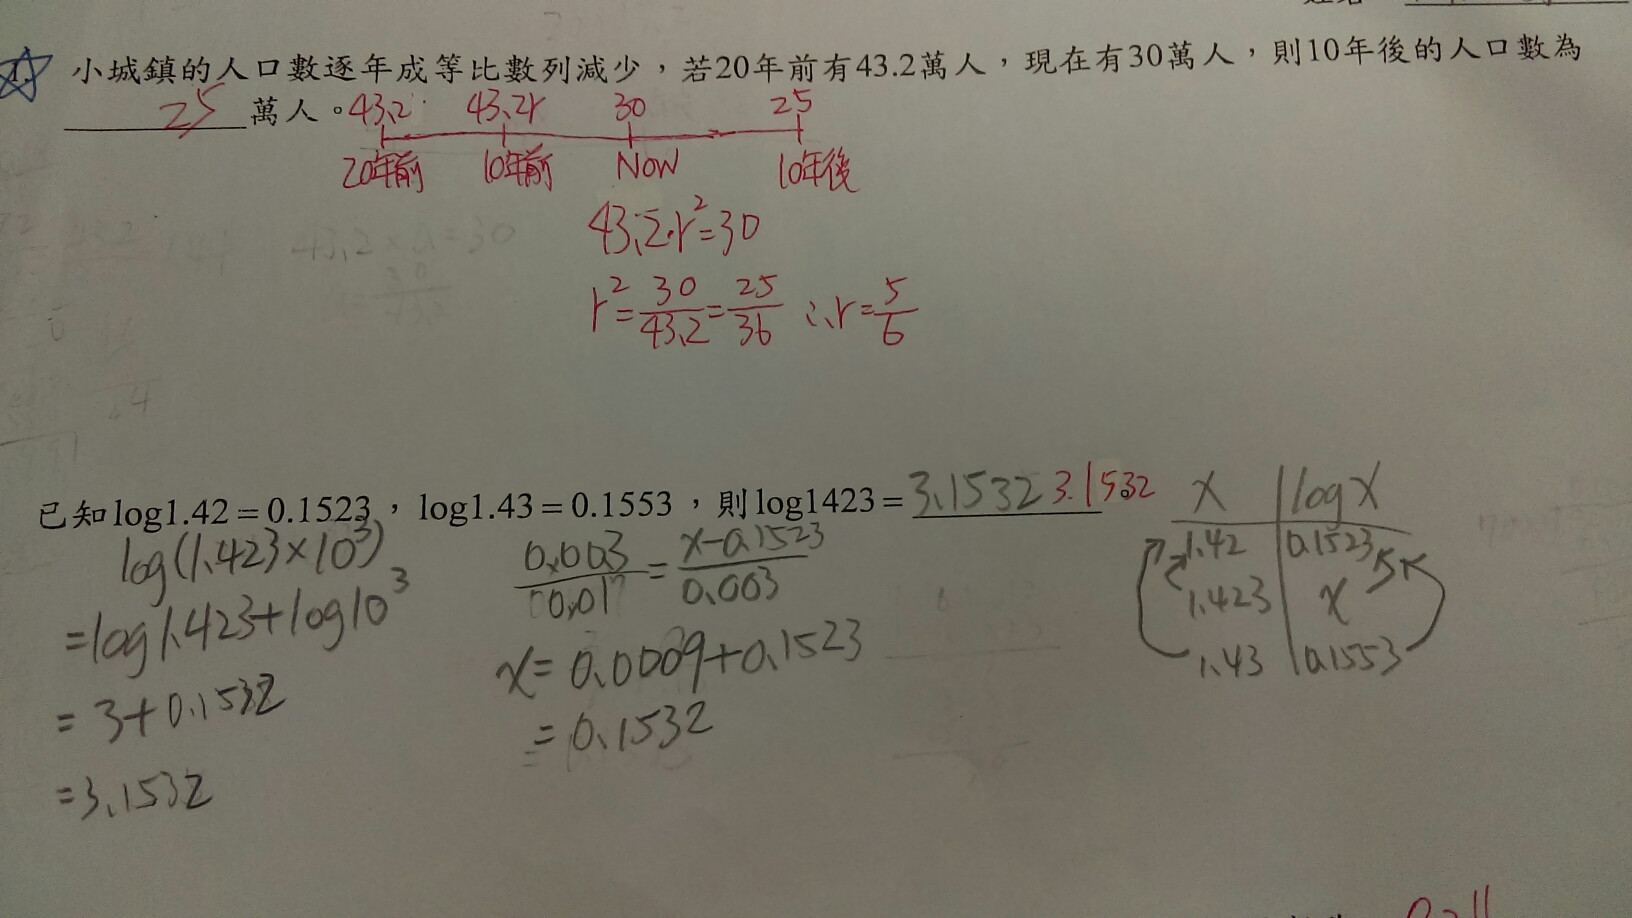 小城鎮的人口數逐年成等比數列減少，若20年前有43.2萬人，現在有30萬人，則10年後的人口數為
25 萬人。
43.2 43.2r 30 25
20年前 10年前 Now 10年後
43.2·r²=30
r²=30/43.2=25/36 ∴r=5/6
已知log1.42=0.1523，log1.43=0.1553，則log1423= 3.1532 3.1532
log(1.423×10³)
=log1.423+log10³
=3+0.1532
=3.1532
0.003/0.01=x-0.1523/0.003
x=0.0009+0.1523
=0.1532
x logx
1.42 0.1523
1.423 x
1.43 0.1553